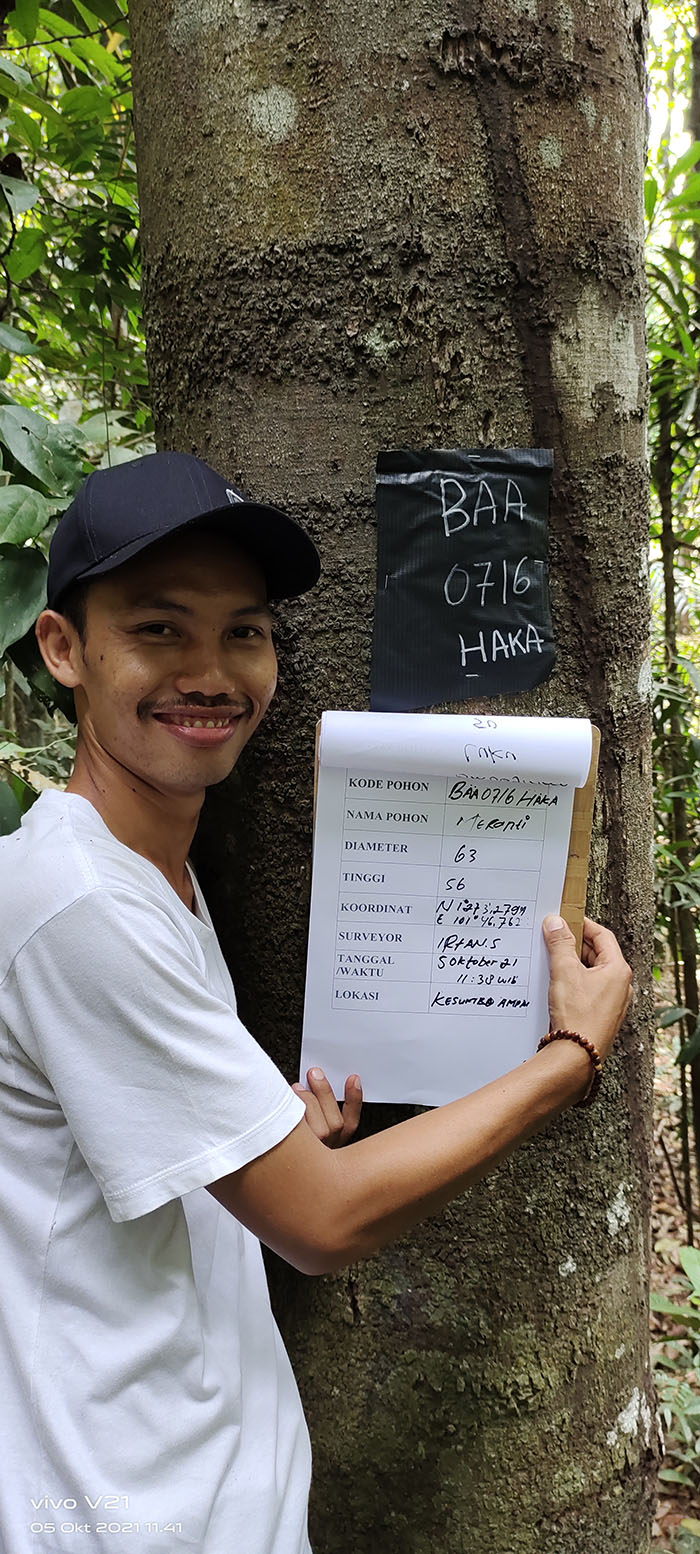 BAA
0716
HAKA
KODE POHON BAA 0716 HAKA
NAMA POHON Meranti
DIAMETER 63
TINGGI 56
KOORDINAT
E 101° 46,762
SURVEYOR IRFAN.S
TANGGAL 5 Oktober 21
/WAKTU 11:38 WIB
LOKASI KESUMBO AMPAI
vivo V21
05 Okt 2021 11.41